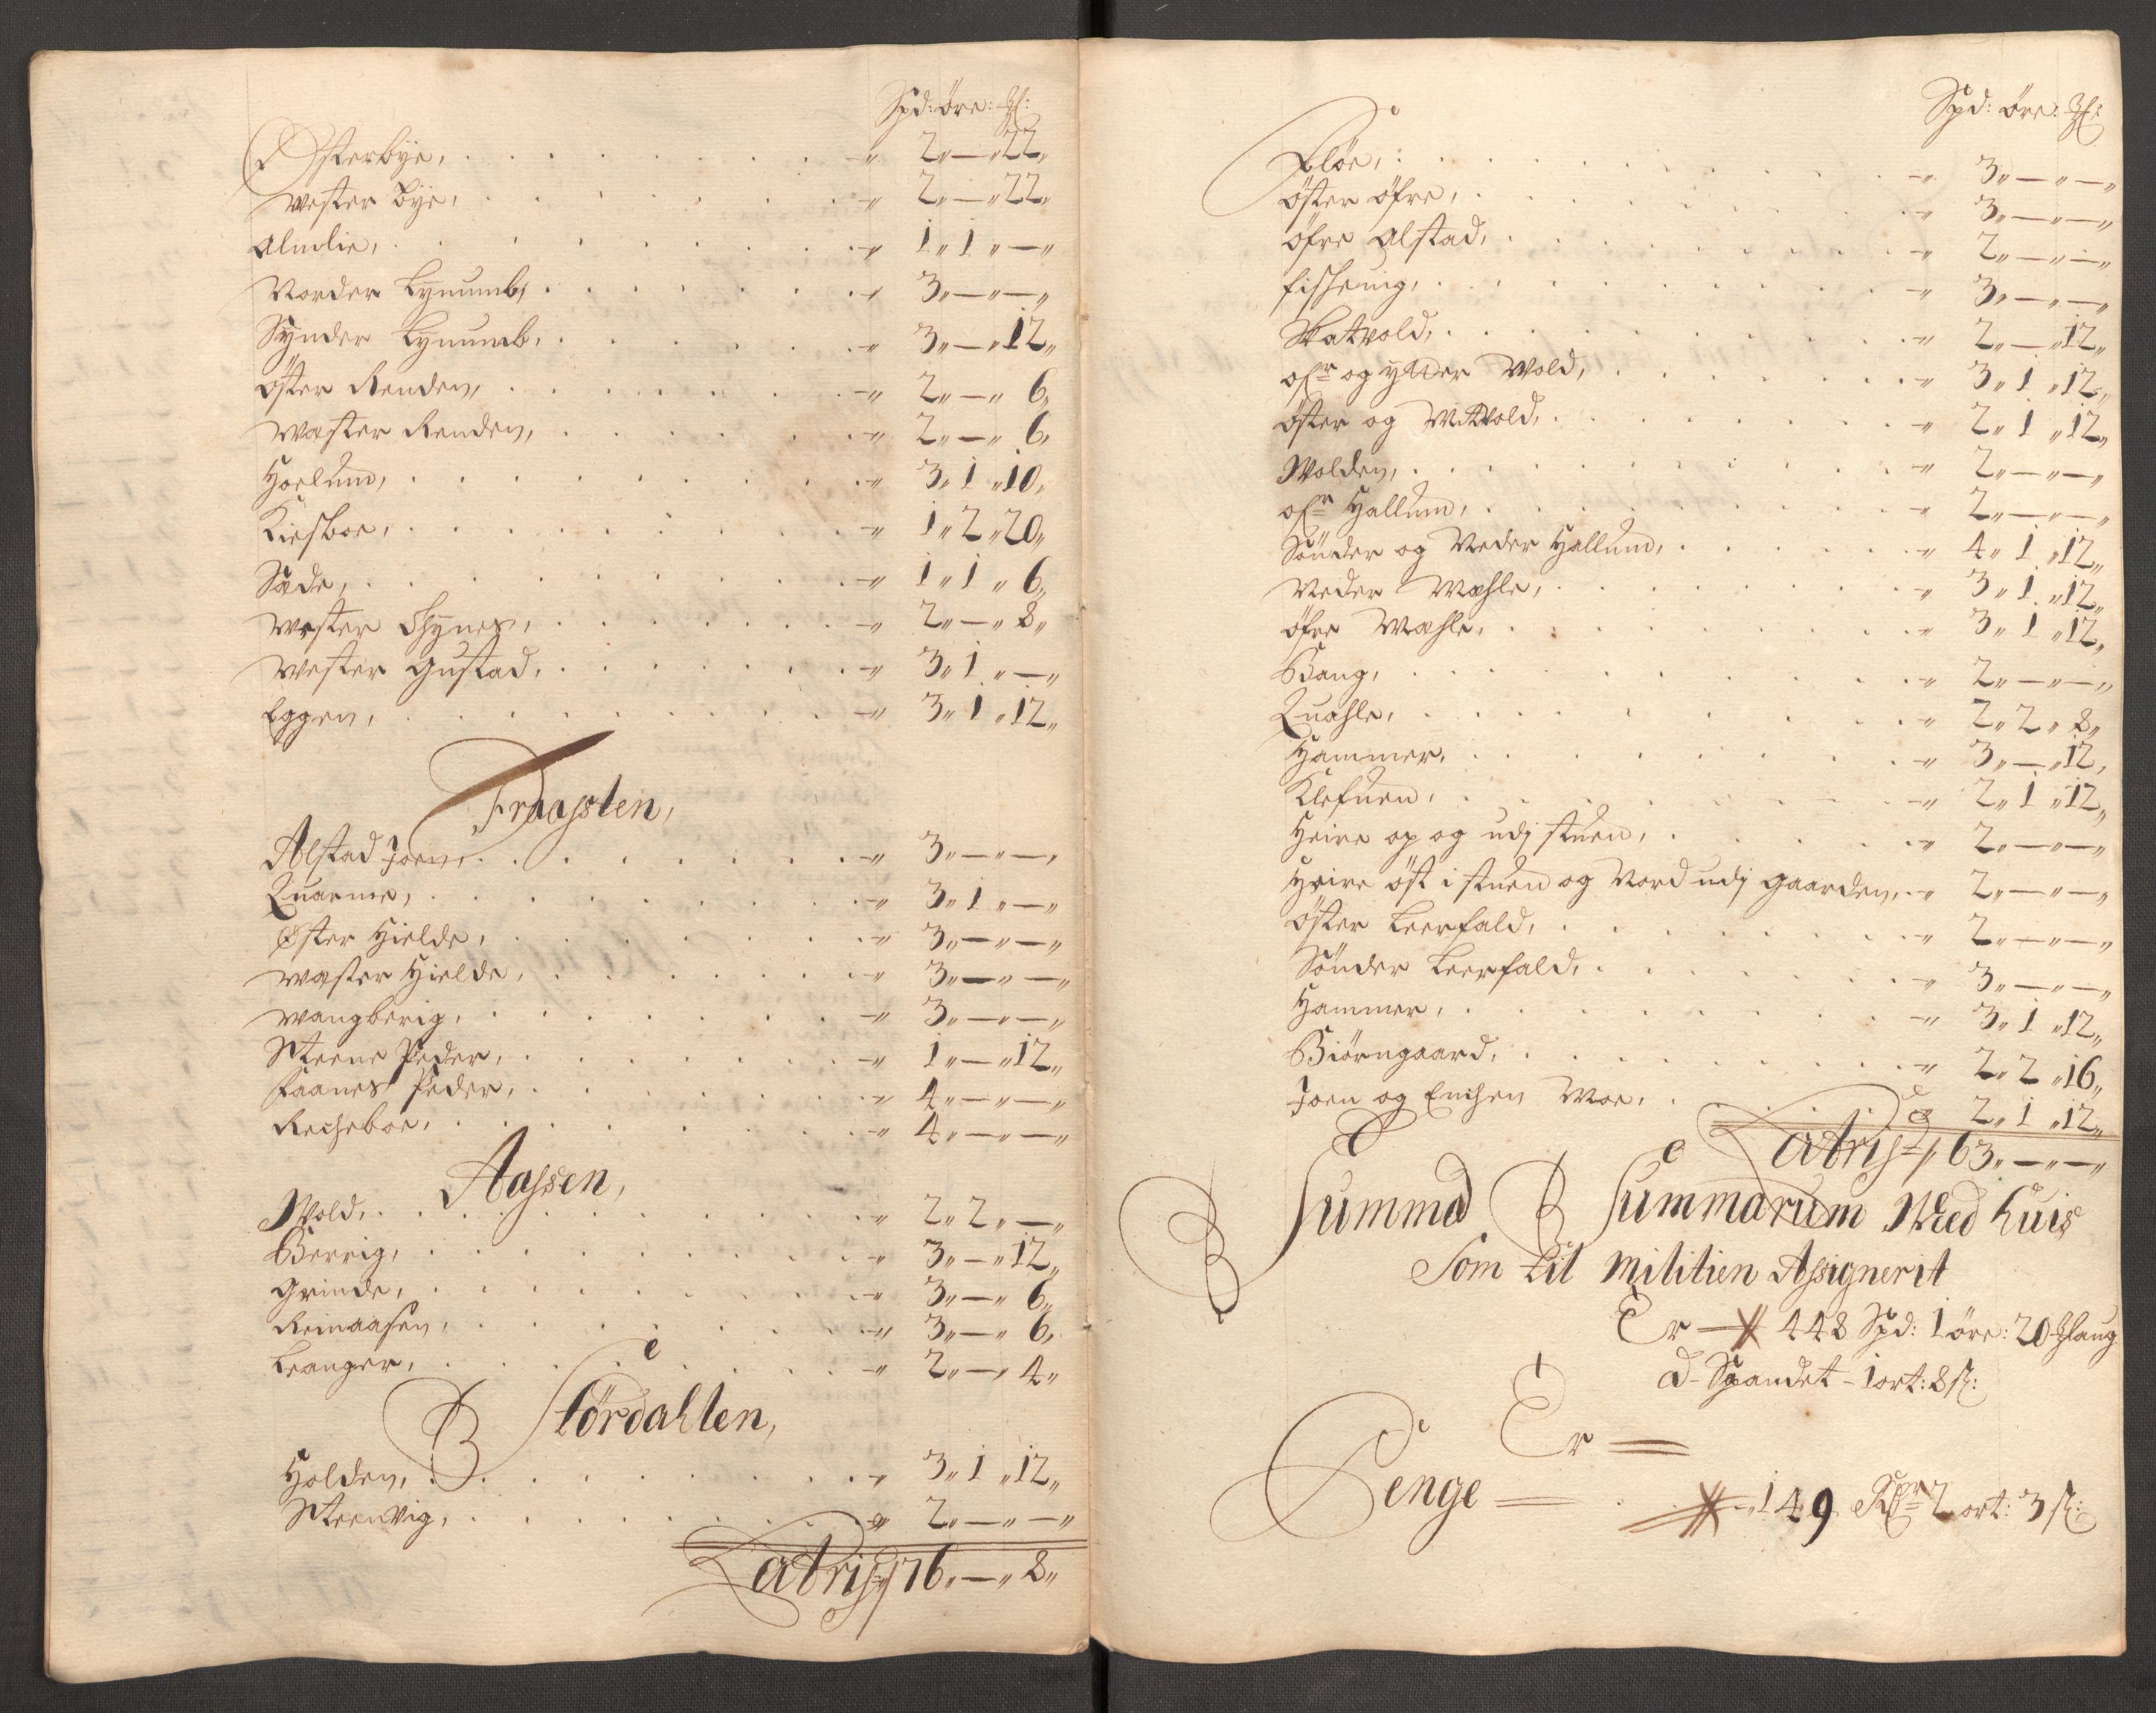 Spd: öre: Ꝣl:
Østerbÿe, 2 „ — „ 22 „
Wester Bÿe, 2 „ — „ 22 „
Almlie, 1 „ 1 „ — „
Norder Lynumb, 3 „ — „ — „
Synder Lynumb, 3 „ — „ 12 „
öster Renden, 2 „ — „ 6 „
Wæster Renden, 2 „ — „ 6 „
Hoelum, 3 „ 1 „ 10 „
Kiesboe, 1 „ 2 „ 20 „
Sæde, 1 „ 1 „ 6 „
Wester Thynes, 2 „ — „ 8 „
Wester Gustad, 3 „ 1 „ — „
Eggen, 3 „ 1 „ 12 „
Fraasten,
Alstad Joen, 3 „ — „ — „
Quarme, 3 „ 1 „ — „
Øster Hielde, 3 „ — „ — „
Wæster Hielde, 3 „ — „ — „
Wangberig, 3 „ — „ — „
Steene Peder, 1 „ — „ 12 „
Faanes Peder, 4 „ — „ — „
Recheboe, 4 „ — „ — „
Aassen,
Wold, 2 „ 2 „ — „
Berrig, 3 „ — „ 12 „
Grinde, 3 „ — „ 6 „
Reinaasen, 3 „ — „ 6 „
Leanger, 2 „ — „ 4 „
Stördahlen,
Holden, 3 „ 1 „ 12 „
Steenvig, 2 „ — „ — „
Latris „ 76 „ — „ 8 „
Spd: öre: Ꝣl:
Floe, 3 „ — „ — „
öster öfre, 3 „ — „ — „
öfre Alstad, 2 „ — „ — „
Fisheuig, 3 „ — „ — „
Skatvold, 2 „ — „ 12 „
ofr og ytter Wold, 3 „ 1 „ 12 „
öster og Mitvold, 2 „ 1 „ 12 „
Wolden, 2 „ — „ — „
ofr Hallum, 2 „ — „ — „
Sönder og Neder Hallum, 4 „ 1 „ 12 „
Neder Wahle, 3 „ 1 „ 12 „
öfre Wahle, 3 „ 1 „ 12 „
Bang, 2 „ — „ — „
Quahle, 2 „ 2 „ 8 „
Hammer, 3 „ — „ 12 „
Klefuen, 2 „ 1 „ 12 „
Heire op og udj stuen, 2 „ — „ — „
Heire öst i stuen og Nord udj gaarden, 2 „ — „ — „
öster Leerfald, 2 „ — „ — „
Sönder Leerfald, 3 „ — „ — „
Hammer, 3 „ 1 „ 12 „
Biörngaard, 2 „ 2 „ 16 „
Joen og Enchen Moe, 2 „ 1 „ 12 „
Latris „ 63 „ — „ — „
Summa Summarum Med huis
Som til Militien Assignerit
Er — 448 Spd: 1 öre: 20 Ꝣlaug
a Spandet — 1 ort: 8 s:
Er =
Penge = 149 Rdr 2 ort: 3 s: